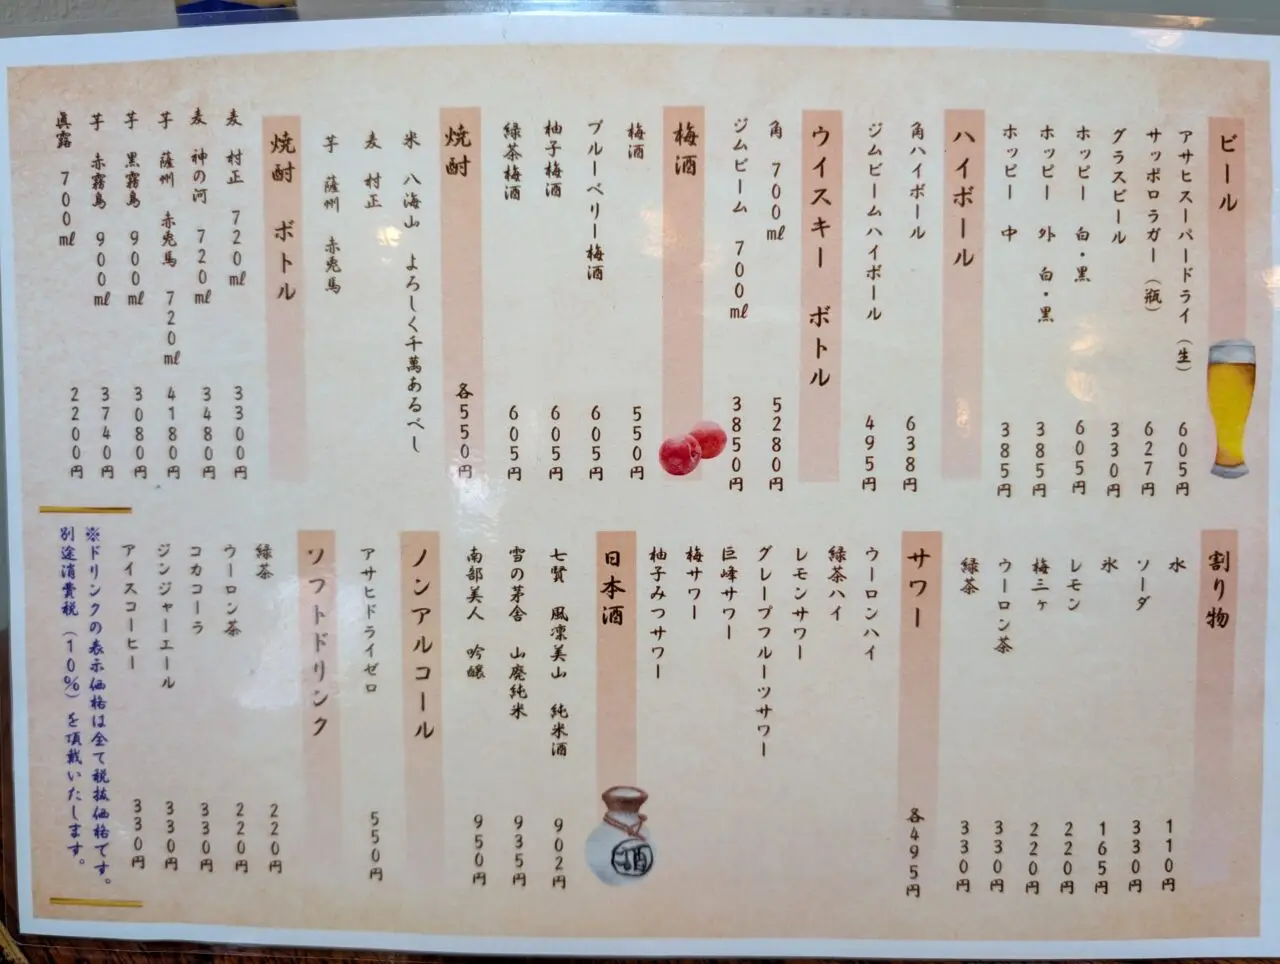 ビール
アサヒスーパードライ（生） 605円
サッポロラガー（瓶） 627円
グラスビール 330円
ホッピー 白・黒 605円
ホッピー 外 白・黒 385円
ホッピー 中 385円
ハイボール
角ハイボール 638円
ジムビームハイボール 495円
ウイスキー ボトル
角 700㎖ 5280円
ジムビーム 700㎖ 3850円
梅酒
梅酒 550円
ブルーベリー梅酒 605円
柚子梅酒 605円
緑茶梅酒 605円
焼酎 各550円
米 八海山 よろしく千萬あるべし
麦 村正
芋 薩州 赤兎馬
焼酎 ボトル
麦 村正 720㎖ 3300円
麦 神の河 720㎖ 3480円
芋 薩州 赤兎馬 720㎖ 4180円
芋 黒霧島 900㎖ 3080円
芋 赤霧島 900㎖ 3740円
眞露 700㎖ 2200円
割り物
水 110円
ソーダ 330円
氷 165円
レモン 220円
梅三ヶ 220円
ウーロン茶 330円
緑茶 330円
サワー 各495円
ウーロンハイ
緑茶ハイ
レモンサワー
グレープフルーツサワー
巨峰サワー
梅サワー
柚子みつサワー
日本酒
酒
七賢 風凛美山 純米酒 902円
雪の茅舎 山廃純米 935円
南部美人 吟醸 950円
ノンアルコール
アサヒドライゼロ 550円
ソフトドリンク
緑茶 220円
ウーロン茶 220円
コカコーラ 330円
ジンジャーエール 330円
アイスコーヒー 330円
※ドリンクの表示価格は全て税抜価格です。
別途消費税（10％）を頂戴いたします。